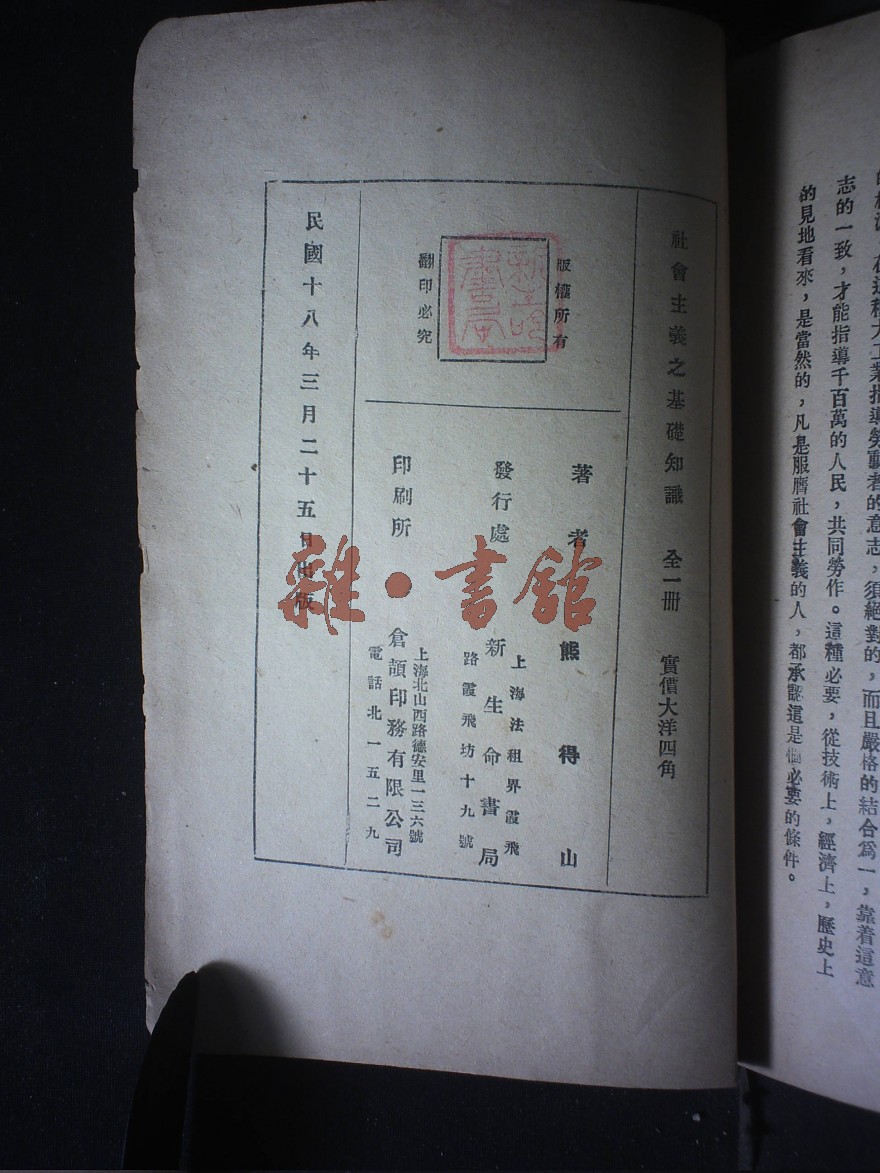 的見地看來，是當然的，凡是服膺社會主義的人，都承認這是個必要的條件。
志的一致，才能指導千百萬的人民，共同勞作。這種必要，從技術上，經濟上，歷史上
社會主義之基礎知識 全一冊 實價大洋四角
版權所有
翻印必究
著者 熊得山
發行處
上海法租界霞飛
路霞飛坊十九號
新生命書局
印刷所
上海北山西路德安里一三六號
倉頡印務有限公司
電話北一五二九
民國十八年三月二十五日出版
雜·書館